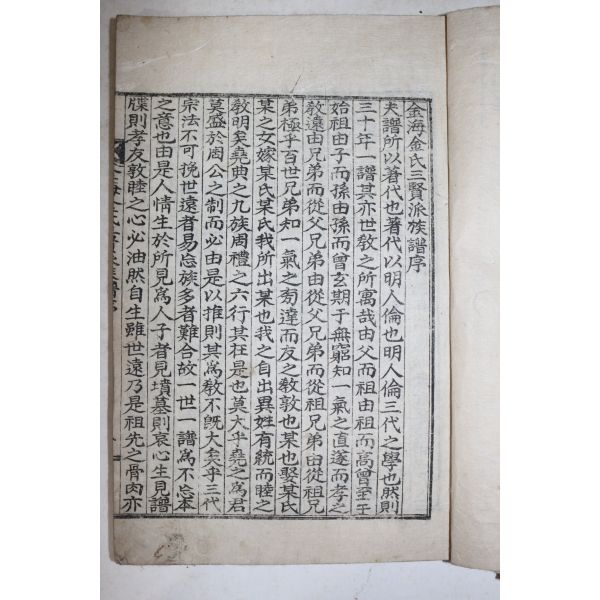 金海金氏三賢派族譜序
夫譜所以著代也著代以明人倫也明人倫三代之學也然則
三十年一譜其亦世教之所寓哉由父而祖由祖而高曾至于
始祖由子而孫由孫而曾玄期于無窮知一氣之直遂而孝之
教遠由兄弟而從父兄弟由從父兄弟而從祖兄弟由從祖兄
弟極乎百世兄弟知一氣之旁達而友之教敦也某也娶某氏
某之女嫁某氏某氏我所出某也我之自出異姓有統而睦之
教明矣堯典之九族周禮之六行其在是也莫大乎堯之爲君
莫盛於周公之制而必由是以推則其爲教不旣大矣乎三代
宗法不可挽世遠者易忘族多者難合故一世一譜爲不忘本
之意也由是人情生於所見爲人子者見墳墓則哀心生見譜
牒則孝友敦睦之心必油然自生雖世遠乃是祖先之骨肉亦